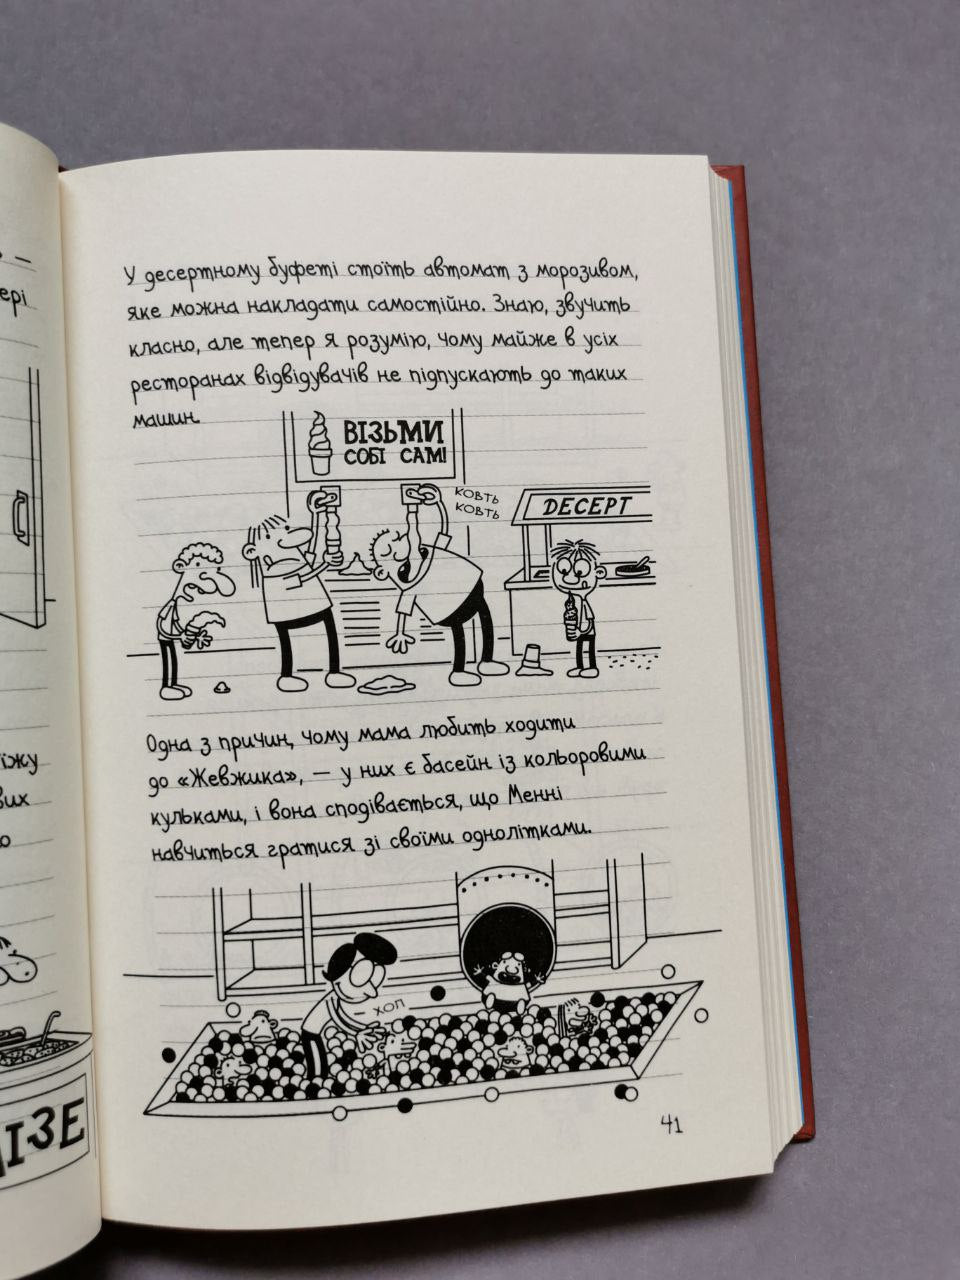 ері
їжу
вих
ІЗЕ
У десертному буфеті стоїть автомат з морозивом,
яке можна накладати самостійно. Знаю, звучить
класно, але тепер я розумію, чому майже в усіх
ресторанах відвідувачів не підпускають до таких
машин.
ВІЗЬМИ
СОБІ САМ!
КОВТЬ
КОВТЬ
ДЕСЕРТ
Одна з причин, чому мама любить ходити
до «Жевжика», — у них є басейн із кольоровими
кульками, і вона сподівається, що Менні
навчиться гратися зі своїми однолітками.
ХОП
41